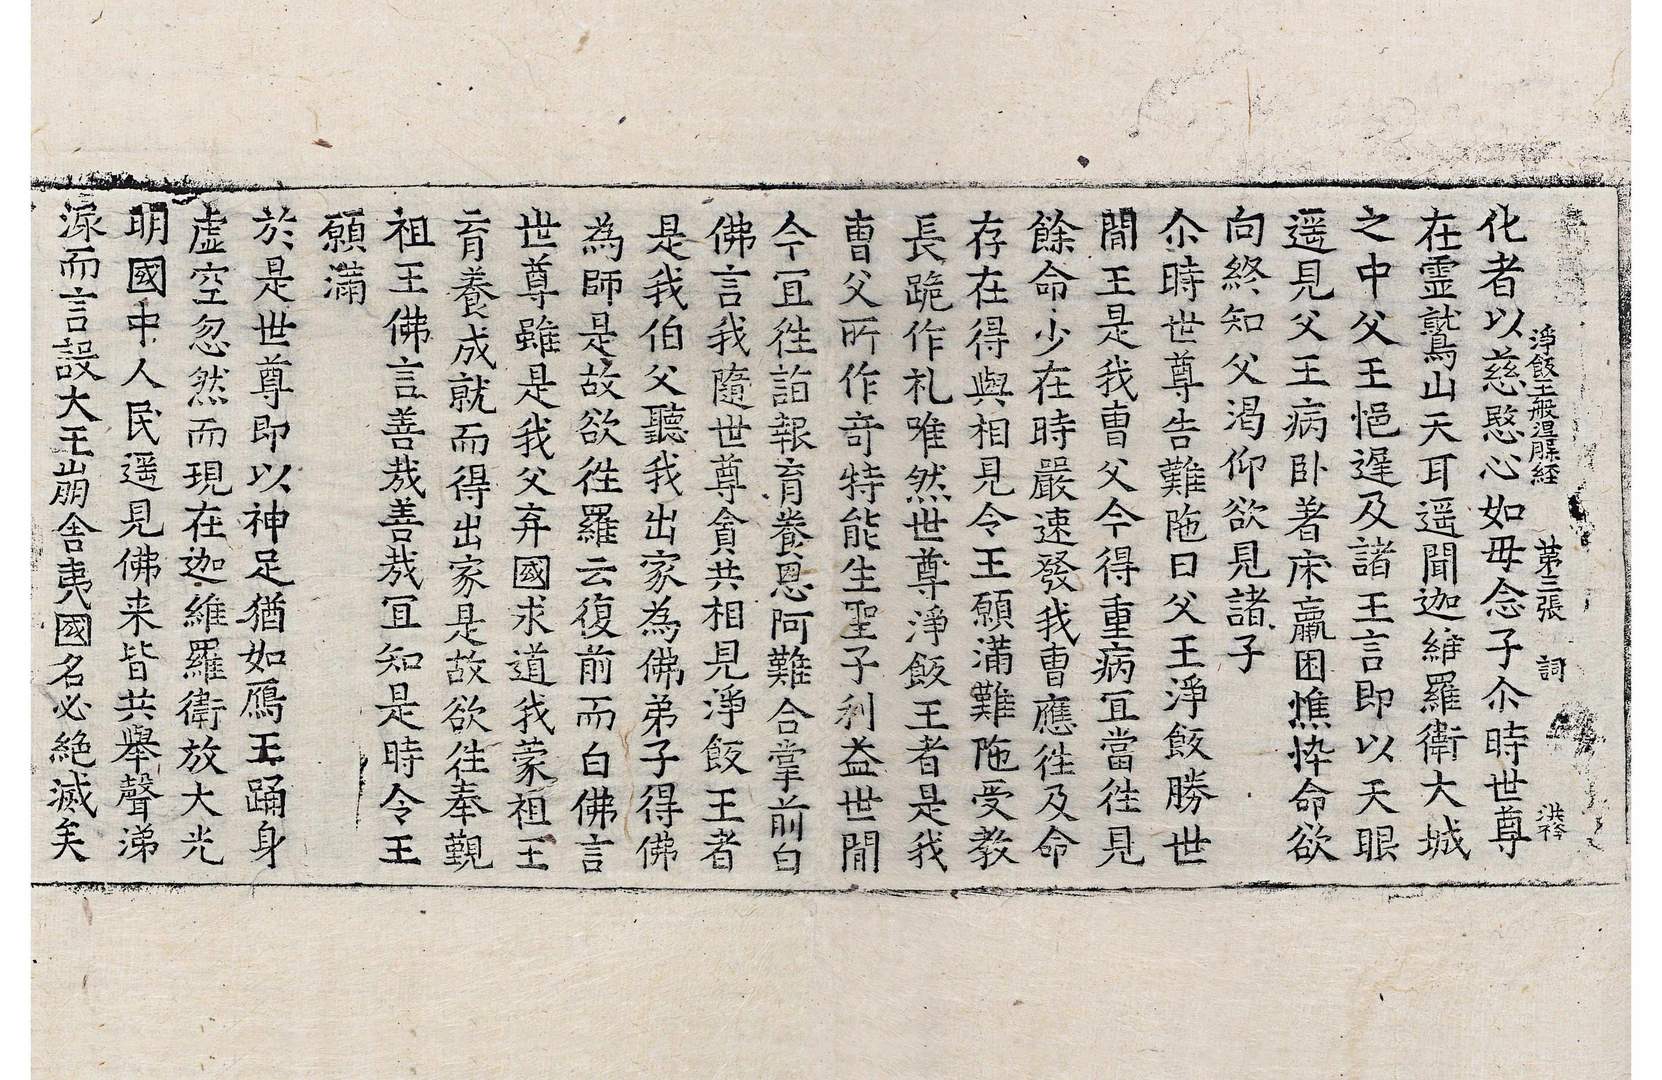 淨飯王般涅槃経 苐三張 詞 洪㐱
化者以慈愍心如毋念子尒時世尊
在霊鷲山天耳遥聞迦維羅衛大城
之中父王悒遲及諸王言即以天眼
遥見父王病卧著床羸困憔悴命欲
向終知父渇仰欲見諸子
尒時世尊告難陁曰父王淨飯勝世
閒王是我曺父今得重病冝當徃見
餘命少在時嚴速發我曺應徃及命
存在得與相見令王願滿難陁受教
長跪作礼唯然世尊淨飯王者是我
曺父所作竒特能生聖子利益世閒
今冝徃詣報育養恩阿難合掌前白
佛言我隨世尊貪共相見淨飯王者
是我伯父聽我出家為佛弟子得佛
為師是故欲徃羅云復前而白佛言
世尊雖是我父弃國求道我蒙祖王
育養成就而得出家是故欲徃奉覲
祖王佛言善㦲善㦲冝知是時令王
願滿
於是世尊即以神足猶如鴈王踊身
虛空忽然而現在迦維羅衛放大光
明國中人民遥見佛来皆共舉聲涕
淚而言設大王崩舍夷國名必絶滅矣